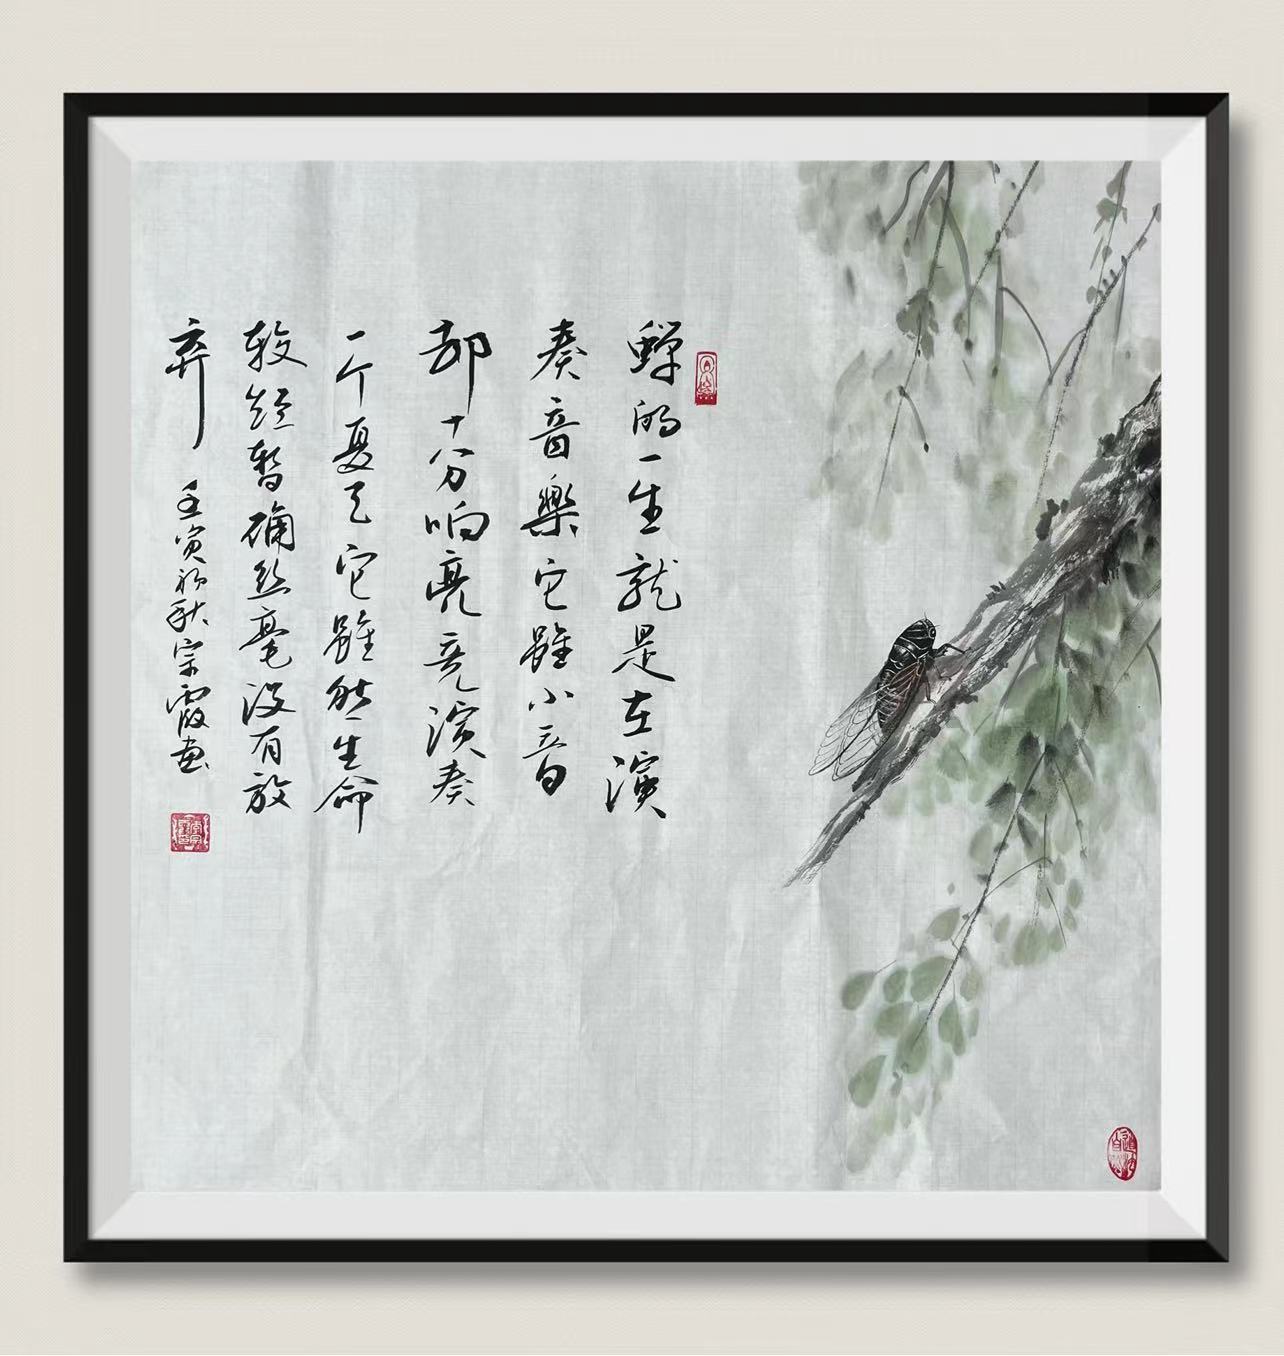 蟬的一生就是在演
奏音樂它雖小音
却十分响亮竞演奏
一个夏天它雖然生命
较短暂确丝毫没有放
弃
壬寅初秋宗霞画